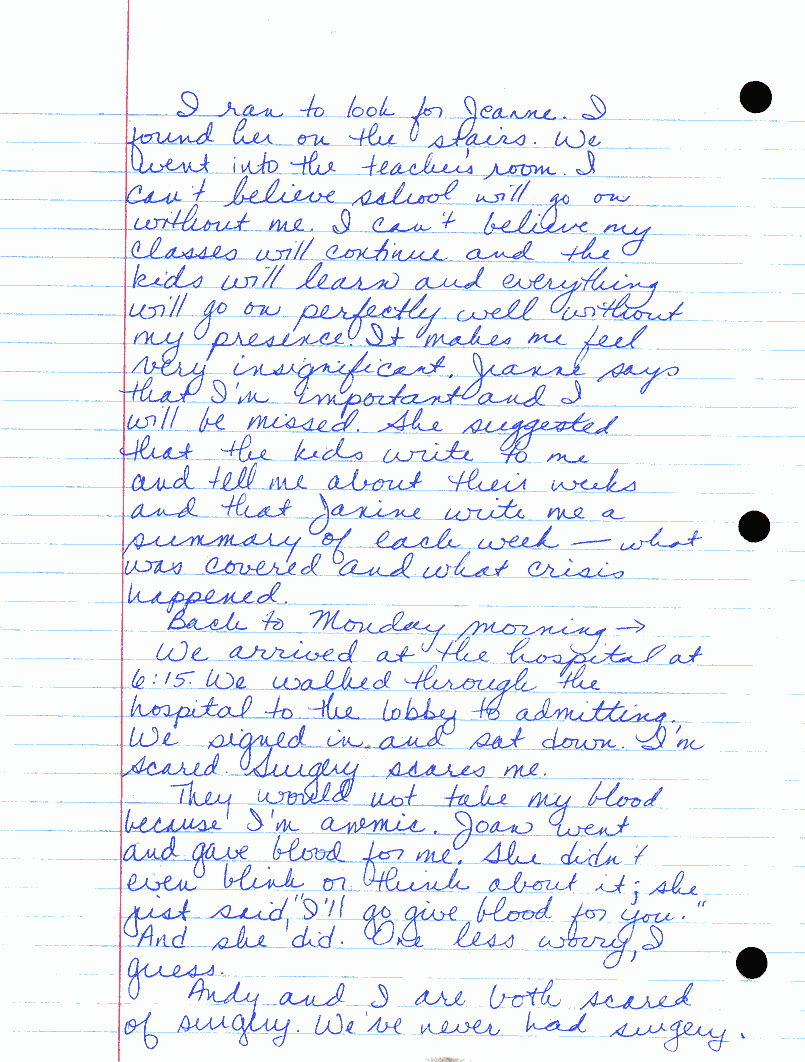 I ran to look for Jeanne. I
found her on the stairs. We
went into the teacher's room. I
can't believe school will go on
without me. I can't believe my
classes will continue and the
kids will learn and everything
will go on perfectly well without
my presence. It makes me feel
very insignificant. Jeanne says
that I'm important and I
will be missed. She suggested
that the kids write to me
and tell me about their weeks
and that Janine write me a
summary of each week — what
was covered and what crisis
happened.
Back to Monday morning →
We arrived at the hospital at
6:15. We walked through the
hospital to the lobby to admitting.
We signed in and sat down. I'm
scared. Surgery scares me.
They would not take my blood
because I'm anemic. Joan went
and gave blood for me. She didn't
even blink or think about it; she
just said, "I'll go give blood for you."
And she did. One less worry, I
guess.
Andy and I are both scared
of surgery. We've never had surgery.